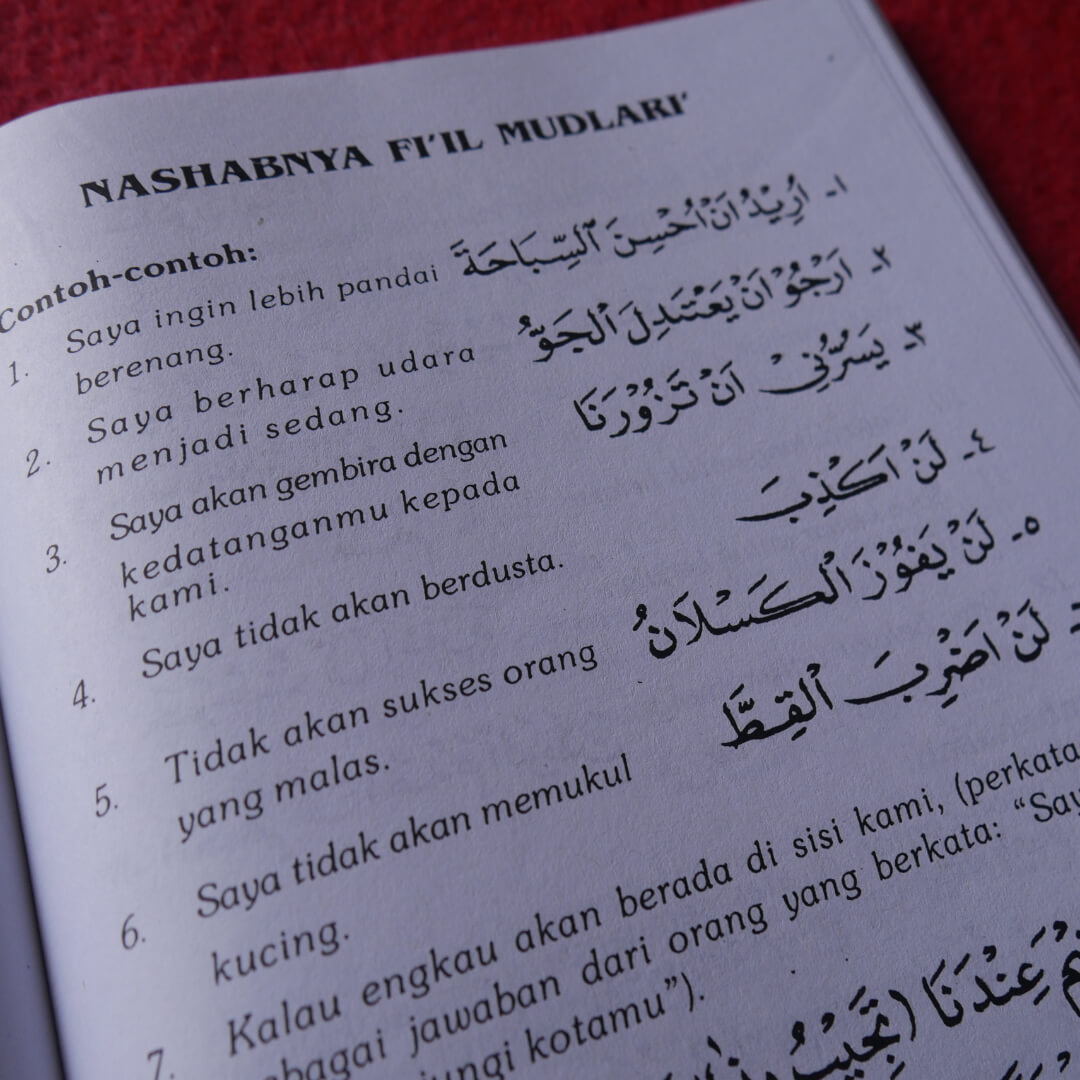 NASHABNYA FI'IL MUDLARI'
Contoh-contoh:
1. Saya ingin lebih pandai ١- اُرِيْدُ اَنْ اُحْسِنَ ٱلسِّبَاحَةَ
berenang.
2. Saya berharap udara ٢- اَرْجُوْ اَنْ يَعْتَدِلَ ٱلْجَوُّ
menjadi sedang.
3. Saya akan gembira dengan ٣- يَسُرُّنِيْ اَنْ تَزُوْرَنَا
kedatanganmu kepada
kami.
4. Saya tidak akan berdusta. ٤- لَنْ اَكْذِبَ
5. Tidak akan sukses orang ٥- لَنْ يَفُوْزَ ٱلْكَسْلَانُ
yang malas.
6. Saya tidak akan memukul لَنْ اَضْرِبَ ٱلْقِطَّ
kucing.
7. Kalau engkau akan berada di sisi kami, (perkata
bagai jawaban dari orang yang berkata: "Say
ungi kotamu").
عِنْدَنَا (تُجِيْبُ